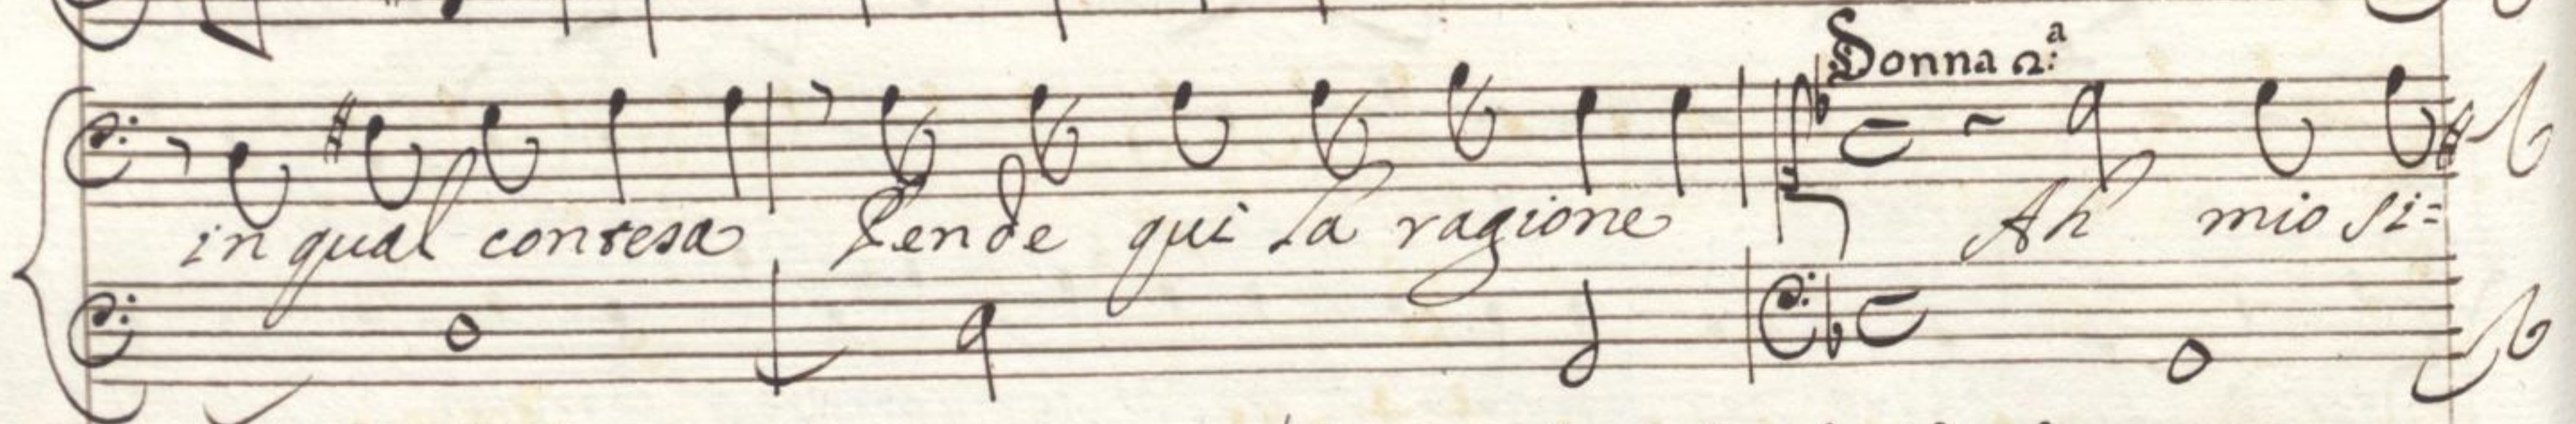 Donna 2.ª
in qual contesa Pende qui la ragione Ah mio si=